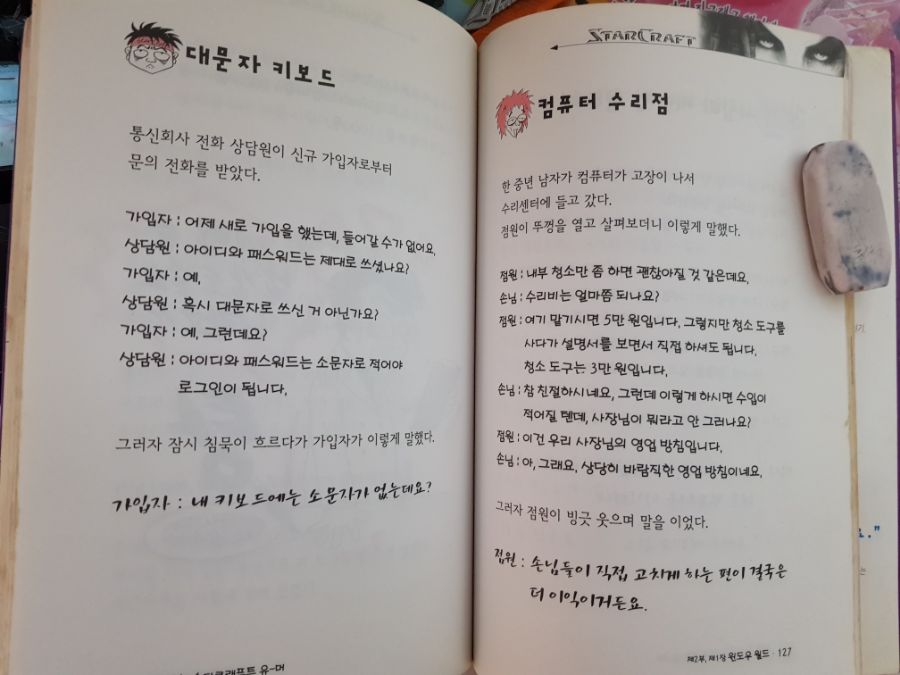 대문자 키보드
통신회사 전화 상담원이 신규 가입자로부터
문의 전화를 받았다.
가입자 : 어제 새로 가입을 했는데, 들어갈 수가 없어요.
상담원 : 아이디와 패스워드는 제대로 쓰셨나요?
가입자 : 예.
상담원 : 혹시 대문자로 쓰신 거 아닌가요?
가입자 : 예, 그런데요?
상담원 : 아이디와 패스워드는 소문자로 적어야
로그인이 됩니다.
그러자 잠시 침묵이 흐르다가 가입자가 이렇게 말했다.
가입자 : 내 키보드에는 소문자가 없는데요?
스타크래프트 유-머
STARCRAFT
컴퓨터 수리점
한 중년 남자가 컴퓨터가 고장이 나서
수리센터에 들고 갔다.
점원이 뚜껑을 열고 살펴보더니 이렇게 말했다.
점원 : 내부 청소만 좀 하면 괜찮아질 것 같은데요.
손님 : 수리비는 얼마쯤 되나요?
점원 : 여기 맡기시면 5만 원입니다. 그렇지만 청소 도구를
사다가 설명서를 보면서 직접 하셔도 됩니다.
청소 도구는 3만 원입니다.
손님 : 참 친절하시네요, 그런데 이렇게 하시면 수입이
적어질 텐데, 사장님이 뭐라고 안 그러나요?
점원 : 이건 우리 사장님의 영업 방침입니다.
손님 : 아, 그래요, 상당히 바람직한 영업 방침이네요.
그러자 점원이 빙긋 웃으며 말을 이었다.
점원 : 손님들이 직접 고치게 하는 편이 결국은
더 이익이거든요.
제2부, 제1장 윈도우 월드 · 127